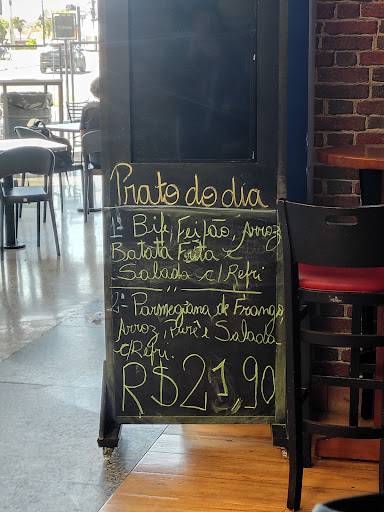 Prato do dia
1- Bife, Feijão, Arroz
Batata Frita e
Salada c/Refri
2- Parmegiana de Frango,
Arroz, Purê e Salada
c/Refri.
R$21,90